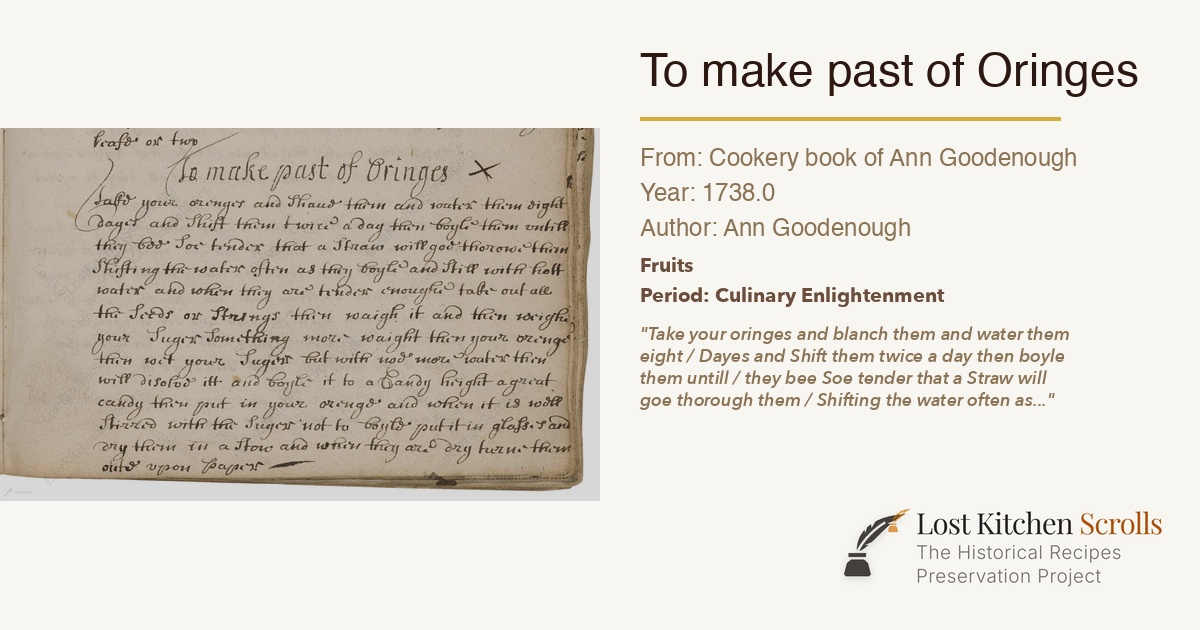 leafe or two
To make past of Oringes
Take your orenges and Shave them and water them eight
dayes and Shift them twice a day then boyle them untill
they bee Soe tender that a Straw will goe thorowe them
Shifting the water often as they boyle and Still with hott
water and when they are tender enoughe take out all
the Seeds or Strings then waigh it and then weighe
your Suger Something more waight then your orenge
then wet your Suger but with noe more water then
will disolve itt and boyle it to a Candy height a great
candy then put in your orenge and when it is well
Stirred with the Suger not to boyle put it in glasses and
dry them in a Stow and when they are dry turne them
oute upon paper
To make past of Oringes
From: Cookery book of Ann Goodenough
Year: 1738.0
Author: Ann Goodenough
Fruits
Period: Culinary Enlightenment
"Take your oringes and blanch them and water them
eight / Dayes and Shift them twice a day then boyle
them untill / they bee Soe tender that a Straw will
goe thorough them / Shifting the water often as..."
Lost Kitchen Scrolls
The Historical Recipes
Preservation Project